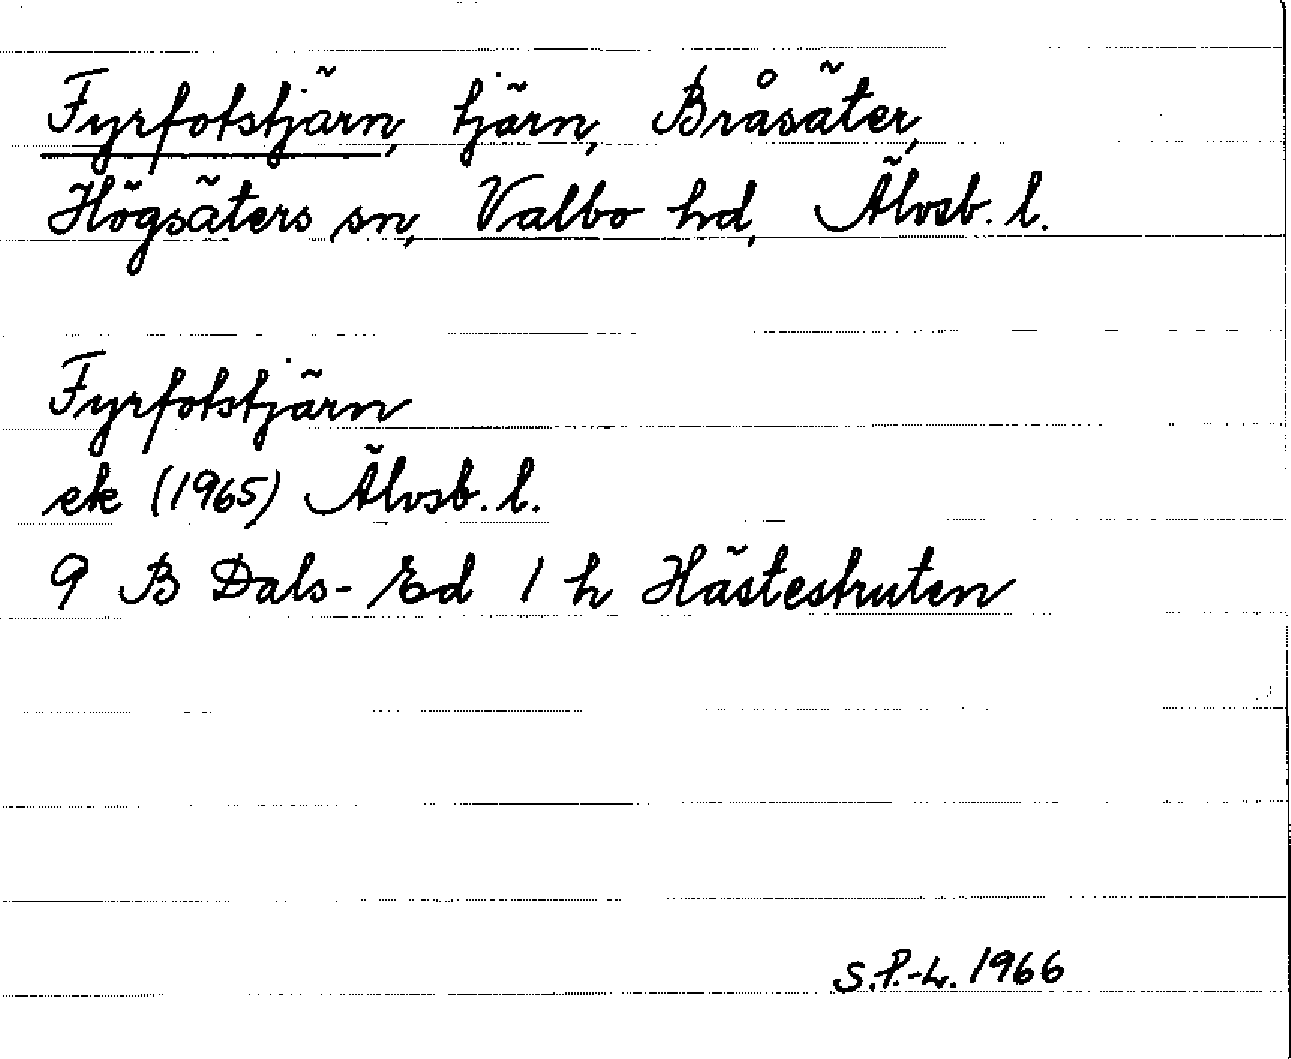 Fyrfotstjärn, tjärn, Bråsäter,
Högsäters sn, Valbo hd, Älvsb. l.
Fyrfotstjärn
ek (1965) Älvsb. l.
9 B Dals-Ed 1 h Hästeskruten
S.P.-L. 1966